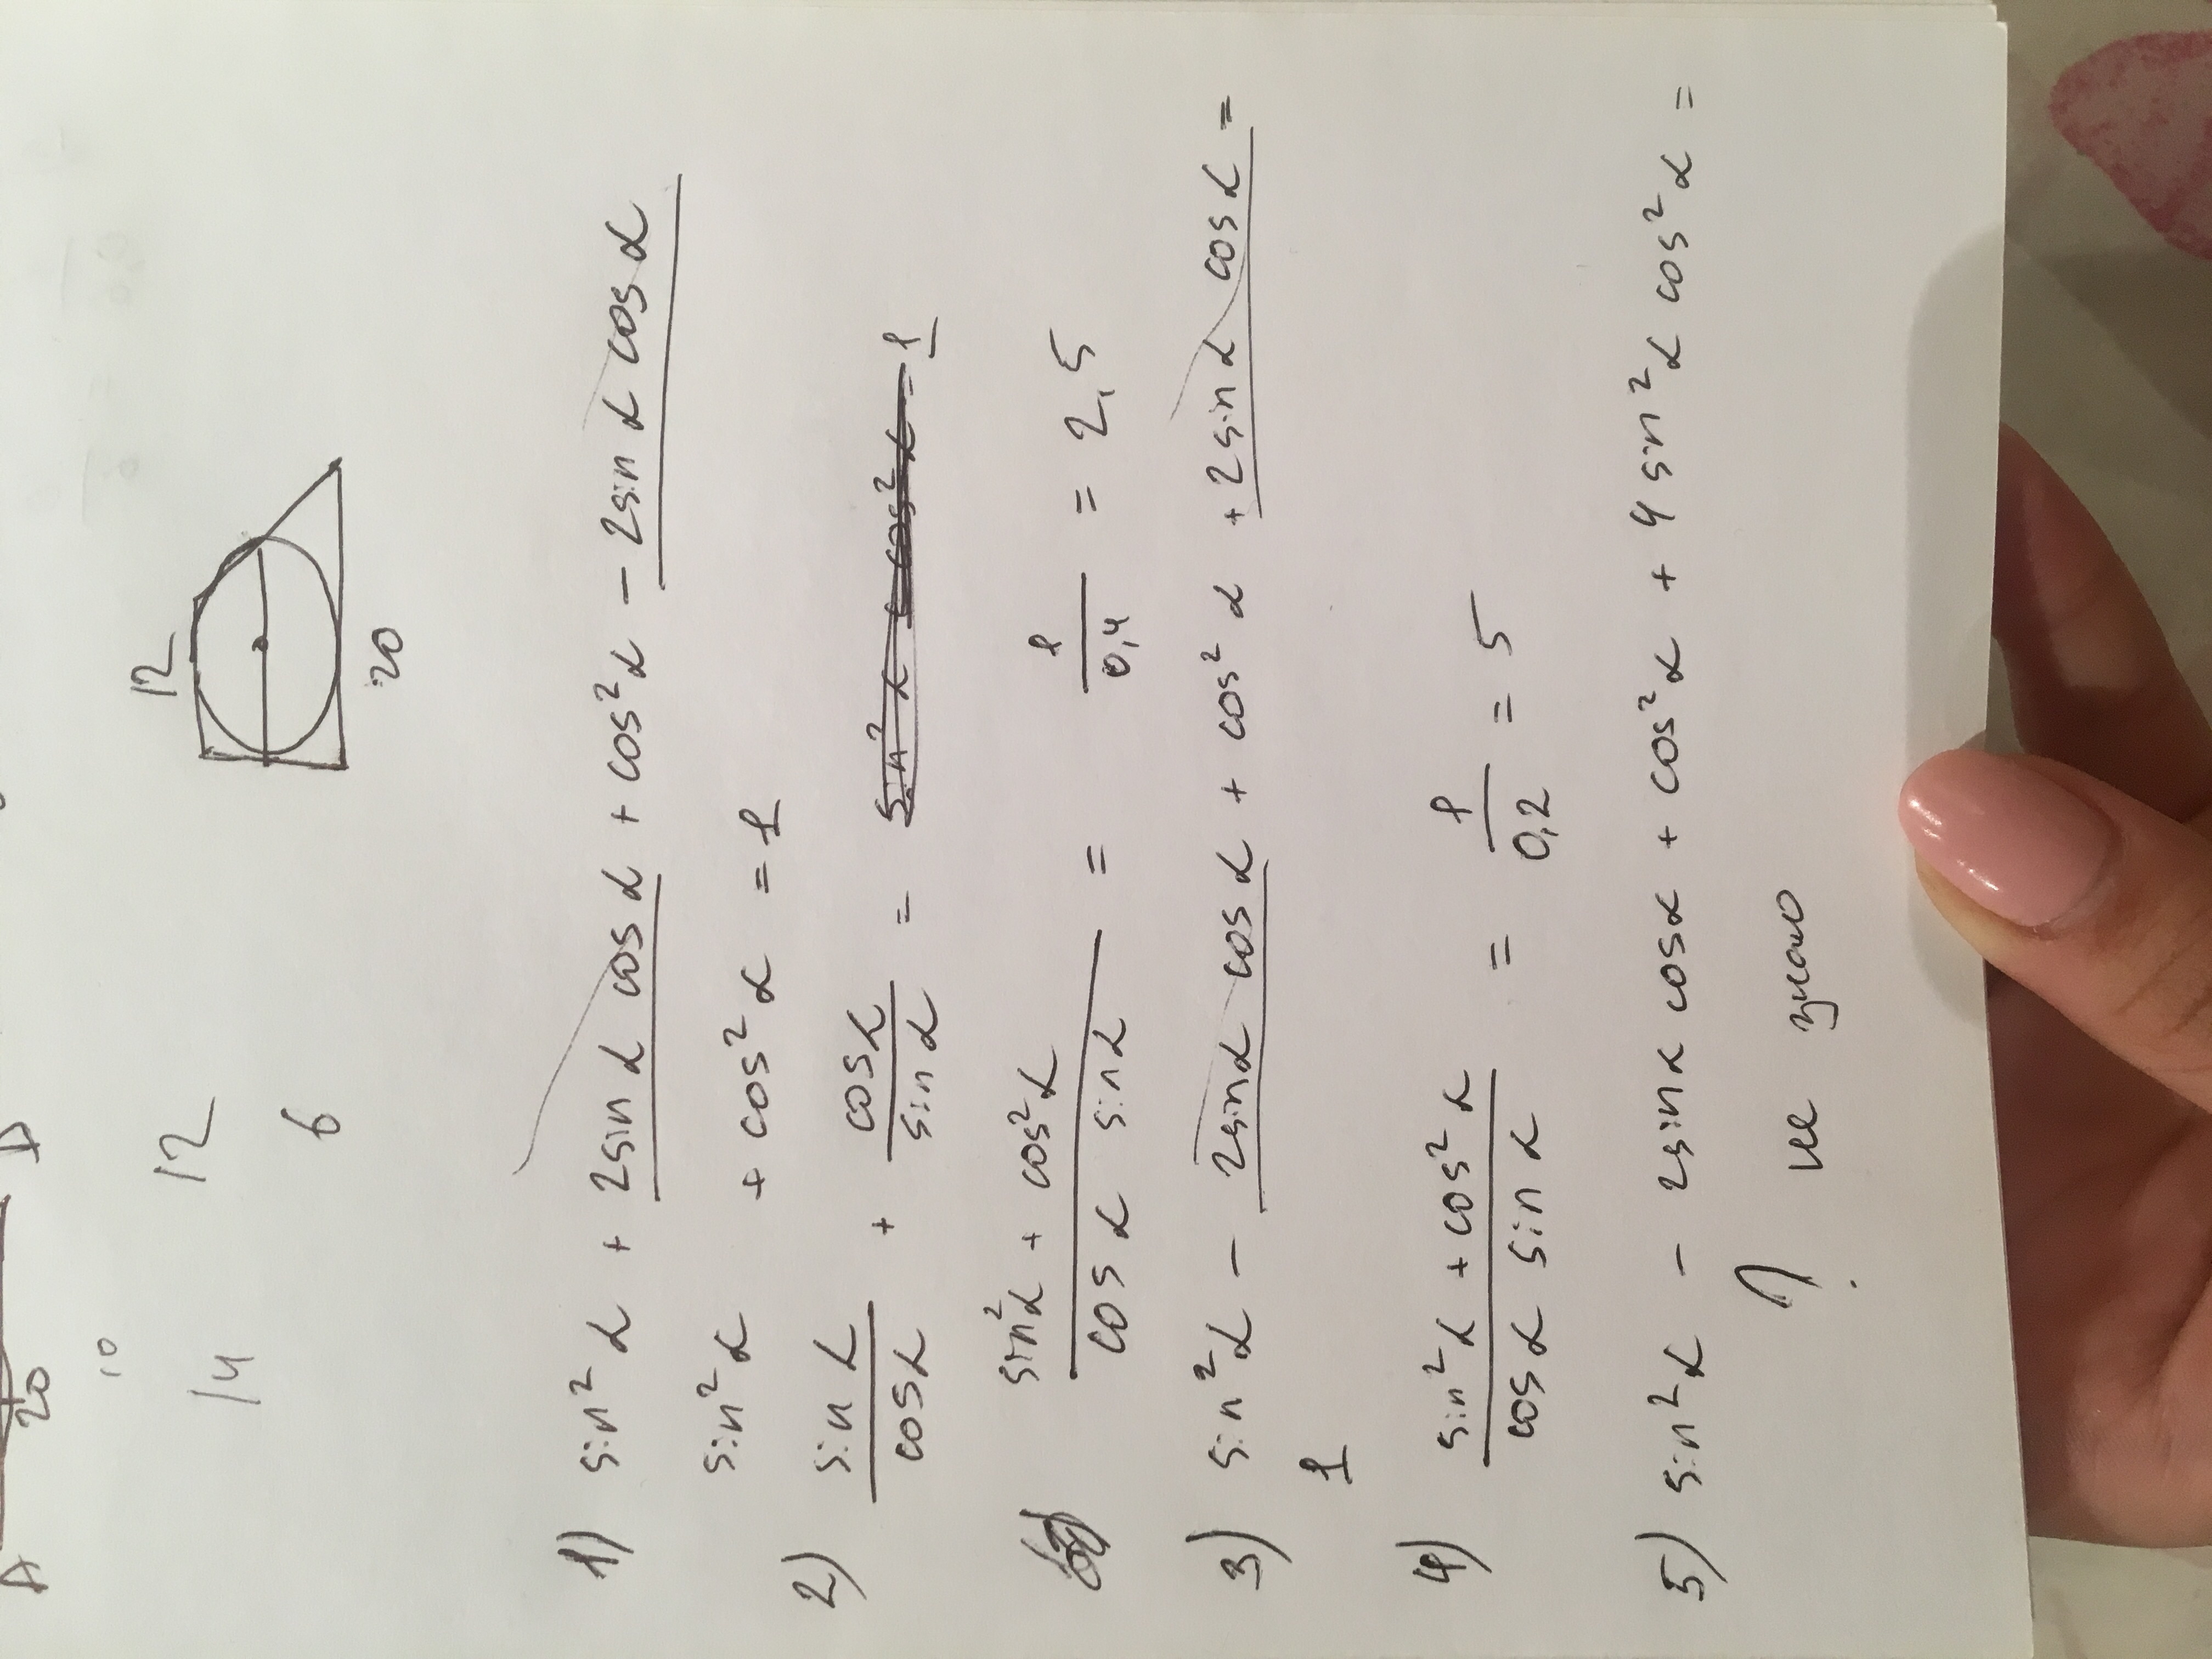 A 20 D
10
14 12
6
12
20
1) sin² α + 2sin α cos α + cos² α − 2sin α cos α
sin² α + cos² α = 1
2) sin α / cos α + cos α / sin α = sin² α cos² α = 1
sin² α + cos² α / cos α sin α = 1 / 0,4 = 2,5
3) sin² α − 2sin α cos α + cos² α + 2sin α cos α =
1
4) sin² α + cos² α / cos α sin α = 1 / 0,2 = 5
5) sin² α − 2sin α cos α + cos² α + 4 sin² α cos² α =
? не знаю